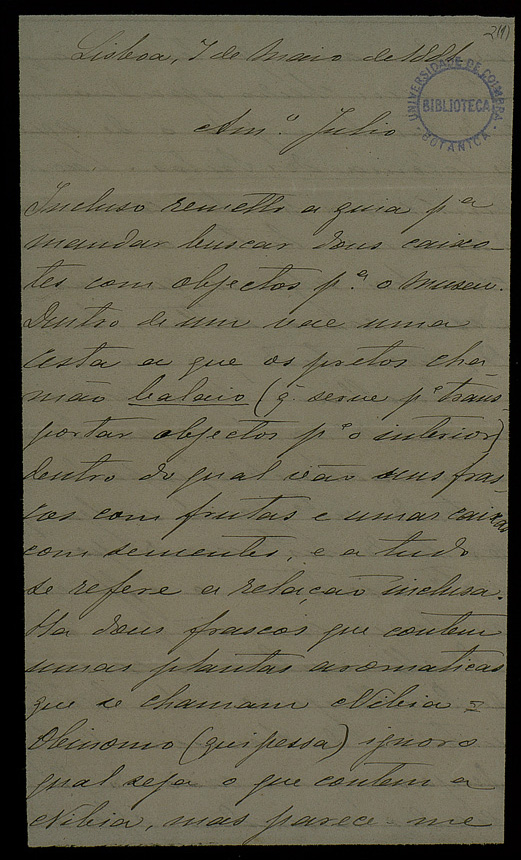 2(1)
Lisboa, 7 de Maio de 188
UNIVERSIDADE DE COIMBRA
BIBLIOTECA
BOTANICA
Am.º Julio
Incluso remetto a guia pª
mandar buscar dous caixo-
tes com objectos p.ª o Museu.
Dentro de um vae uma
cesta a que os pretos cha-
mão balaio (q. serve pª trans-
portar objectos pª o interior)
dentro do qual vão uns fras-
cos com frutas e umas caixas
com sementes, e a tudo
se refere a relação inclusa.
Ha dous frascos que contem
umas plantas aromaticas
que se chamam Nibia e
Obinomo (quipessa) ignoro
qual seja o que contem a
Nibia, mas parece-me